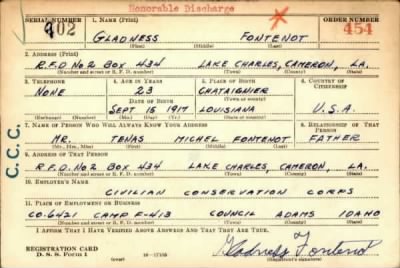 Honorable Discharge
SERIAL NUMBER 1. NAME (Print) ORDER NUMBER
902 GLADNESS FONTENOT 454
(First) (Middle) (Last)
2. ADDRESS (Print)
R.F.D. NO 2 BOX 434 LAKE CHARLES, CAMERON, LA.
(Number and street or R. F. D. number) (Town) (County) (State)
3. TELEPHONE 4. AGE IN YEARS 5. PLACE OF BIRTH 6. COUNTRY OF CITIZENSHIP
NONE 23 CHATAIGNIER
DATE OF BIRTH (Town or county)
SEPT 15 1917 LOUISIANA U.S.A.
(Exchange) (Number) (Mo.) (Day) (Yr.) (State or country)
7. NAME OF PERSON WHO WILL ALWAYS KNOW YOUR ADDRESS 8. RELATIONSHIP OF THAT PERSON
MR. TENAS MICHEL FONTENOT FATHER
(Mr., Mrs., Miss) (First) (Middle) (Last)
9. ADDRESS OF THAT PERSON
R.F.D. NO 2 BOX 434 LAKE CHARLES, CAMERON, LA.
(Number and street or R. F. D. number) (Town) (County) (State)
10. EMPLOYER'S NAME
CIVILIAN CONSERVATION CORPS
11. PLACE OF EMPLOYMENT OR BUSINESS
CO-6421 CAMP F-413 COUNCIL ADAMS IDAHO
(Number and street or R. F. D. number) (Town) (County) (State)
I AFFIRM THAT I HAVE VERIFIED ABOVE ANSWERS AND THAT THEY ARE TRUE.
REGISTRATION CARD
D. S. S. Form 1 Gladness Fontenot
(Registrant's signature)
C.C.C.